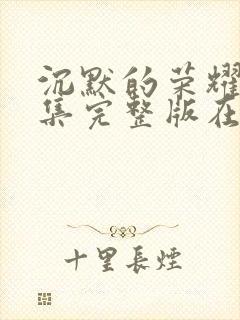 沉默的荣耀
集完整版在
十里长煙